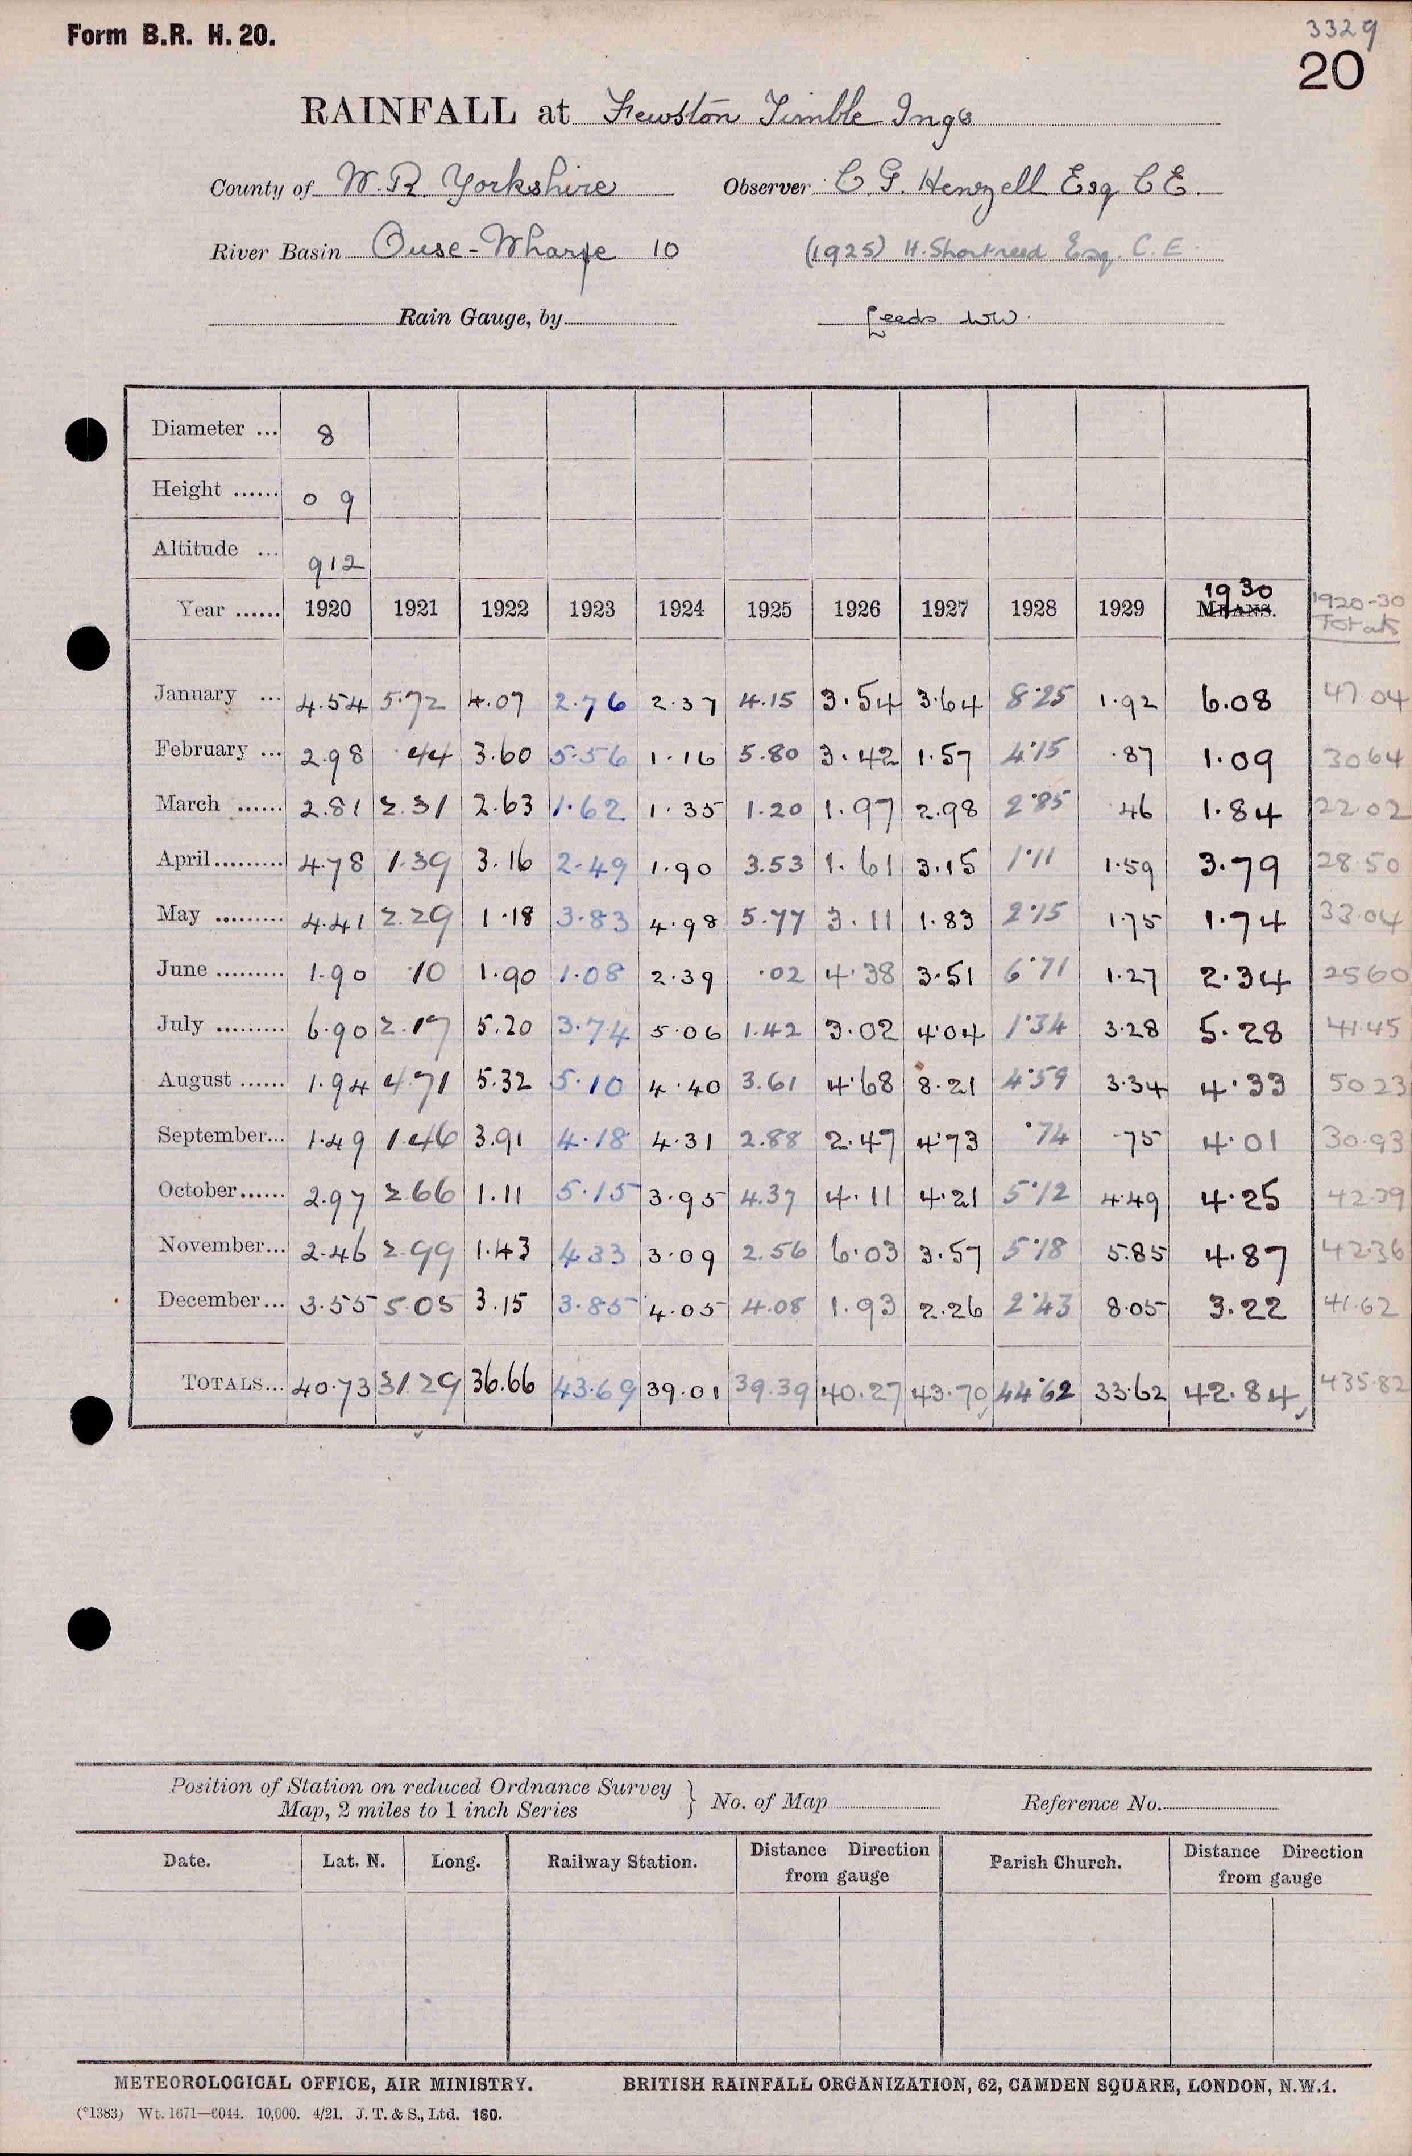 Form B.R. H. 20.
3329
20
RAINFALL at Fewston Timble Ings
County of W.R. Yorkshire Observer C. G. Henzell Esq C E.
River Basin Ouse-Wharfe 10 (1925) H. Shortreed Esq. C. E
Rain Gauge, by Leeds WW.
Diameter ... 8
Height ...... 0 9
Altitude ... 912
Year ...... 1920 1921 1922 1923 1924 1925 1926 1927 1928 1929 1930 MEANS. 1920-30 Totals
January ... 4.54 5.72 4.07 2.76 2.37 4.15 3.54 3.64 8.25 1.92 6.08 47.04
February ... 2.98 .44 3.60 5.56 1.16 5.80 3.42 1.57 4.15 .87 1.09 30.64
March ...... 2.81 2.31 2.63 1.62 1.35 1.20 1.97 2.98 2.85 .46 1.84 22.02
April......... 4.78 1.39 3.16 2.49 1.90 3.53 1.61 3.15 1.11 1.59 3.79 28.50
May ......... 4.41 2.29 1.18 3.83 4.98 5.77 3.11 1.83 2.15 1.75 1.74 33.04
June ......... 1.90 .10 1.90 1.08 2.39 .02 4.38 3.51 6.71 1.27 2.34 25.60
July ......... 6.90 2.17 5.20 3.74 5.06 1.42 3.02 4.04 1.34 3.28 5.28 41.45
August ...... 1.94 4.71 5.32 5.10 4.40 3.61 4.68 8.21 4.59 3.34 4.33 50.23
September... 1.49 1.46 3.91 4.18 4.31 2.88 2.47 4.73 .74 .75 4.01 30.93
October...... 2.97 2.66 1.11 5.15 3.95 4.37 4.11 4.21 5.12 4.49 4.25 42.39
November... 2.46 2.99 1.43 4.33 3.09 2.56 6.03 3.57 5.18 5.85 4.87 42.36
December... 3.55 5.05 3.15 3.85 4.05 4.08 1.93 2.26 2.43 8.05 3.22 41.62
TOTALS... 40.73 31.29 36.66 43.69 39.01 39.39 40.27 43.70 44.62 33.62 42.84 435.82
Position of Station on reduced Ordnance Survey
Map, 2 miles to 1 inch Series } No. of Map Reference No.
Date. Lat. N. Long. Railway Station. Distance Direction from gauge Parish Church. Distance Direction from gauge
METEOROLOGICAL OFFICE, AIR MINISTRY. BRITISH RAINFALL ORGANIZATION, 62, CAMDEN SQUARE, LONDON, N.W.1.
(*1383) Wt. 1671—6044. 10,000. 4/21. J. T. & S., Ltd. 160.